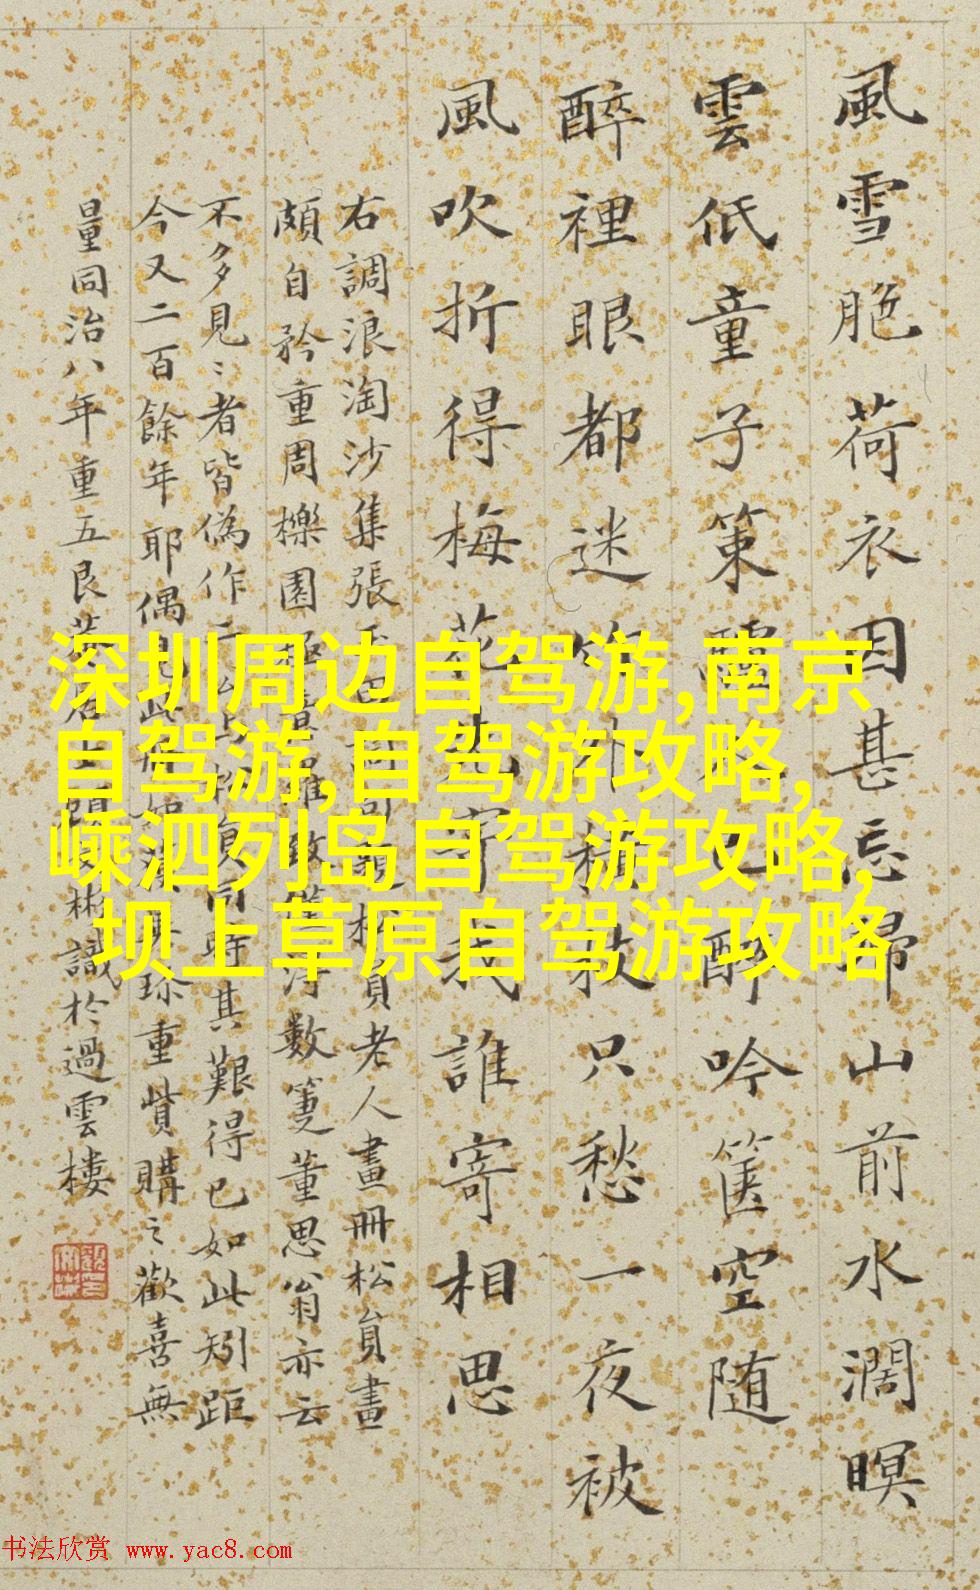 風雪脃荷衣因甚忘歸山前水濶暝
雲低童子策醉吟篋空随
醉裡眼都迷只愁一夜被
風吹折得梅花誰寄相思
右調浪淘沙集張員老人畫冊松員畫
頗自矜重周櫟園數篓董思翁亦云
不多見〻者皆偽作其艱得已如此矧距
今又二百餘年耶偶珎重貲購之歡喜無
量同治八年重五艮彬識於過雲樓
深圳周边自驾游,南京
自驾游,自驾游攻略,
嵊泗列岛自驾游攻略,
坝上草原自驾游攻略
书法欣赏 www.yac8.com